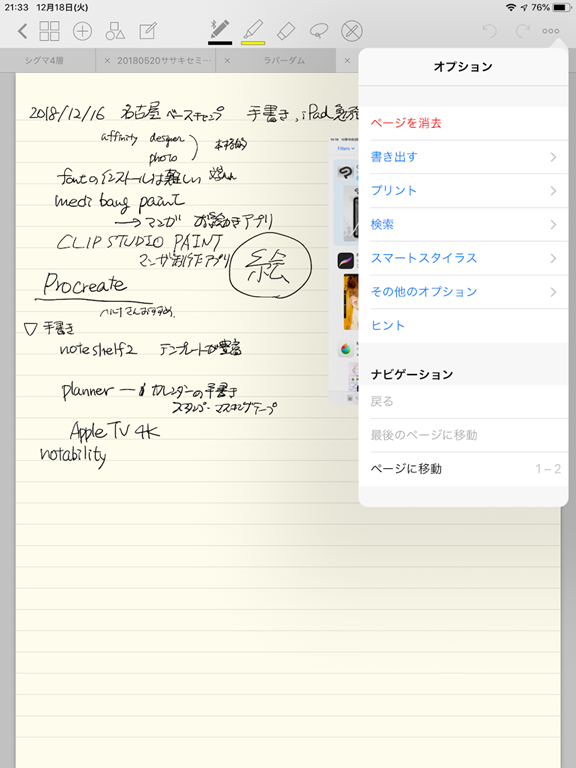 21:33 12月18日(火) 76%
シグマ4層 × 20180520ササキセミ… × ラバーダム ×
オプション
ページを消去
書き出す
プリント
検索
スマートスタイラス
その他のオプション
ヒント
ナビゲーション
戻る
最後のページに移動
ページに移動 1–2
2018/12/16 名古屋ベースキャンプ 手書き、iPad
affinity designer
photo
fontのインストールは難しい
medi bang paint
→マンガ お絵かきアプリ
CLIP STUDIO PAINT
マンガ制作アプリ
絵
Procreate
▽手書き
noteshelf2 テンプレートが豊富
planner → カレンダーの手書き
スタンプ・マスキングテープ
Apple TV 4K
notability
Filters